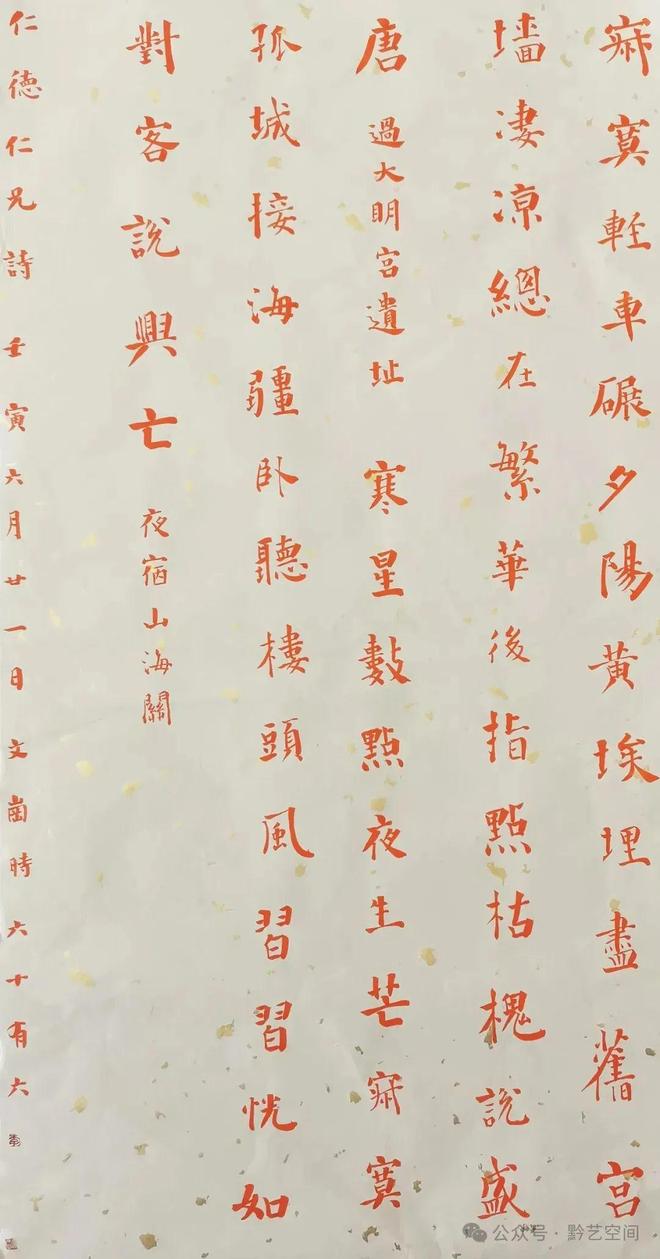 寂寞輕車碾夕陽黃埃埋盡舊宮
墻淒涼總在繁華後指點枯槐說盛
唐 過大明宮遺址 寒星數點夜生芒寂寞
孤城接海疆卧聽樓頭風習習恍如
對客說興亡 夜宿山海關
仁德仁兄詩 壬寅六月廿一日文崗時六十有六
公众号·黔艺空间